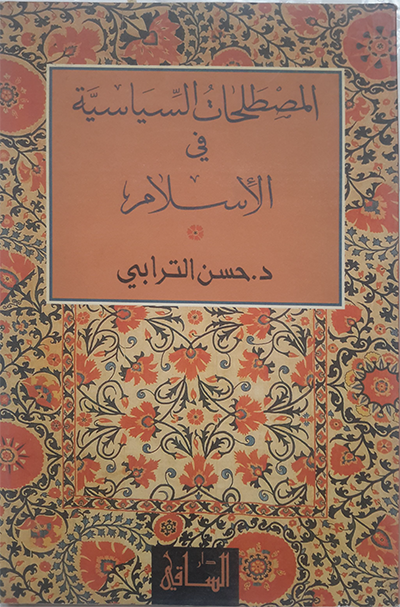 المصطلحات السِّياسيَّة
في
الأسلام
د. حسن الترابي
دار
الساقي